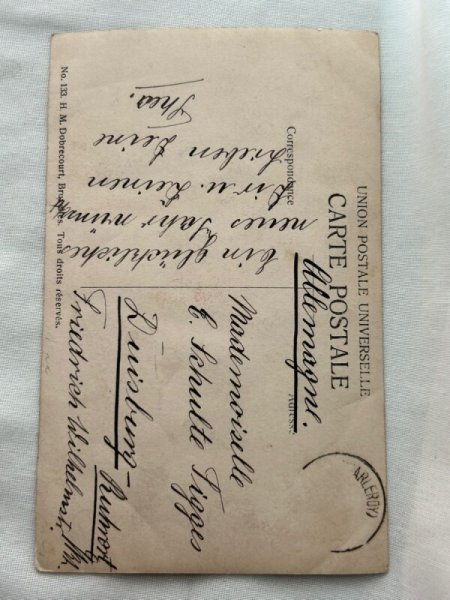 UNION POSTALE UNIVERSELLE
CARTE POSTALE
Correspondance
Adresse
Ein glückliches
neues Jahr wünscht
Dir u. Deinen
Lieben Deine
Allemagne.
Mademoiselle
E. Schulte Figges
Duisburg-
Ruhrort
Friedrich Wilhelmstr.
ARLEROY
No. 133. H. M. Dobrecourt, Bruxelles. Tous droits réservés.